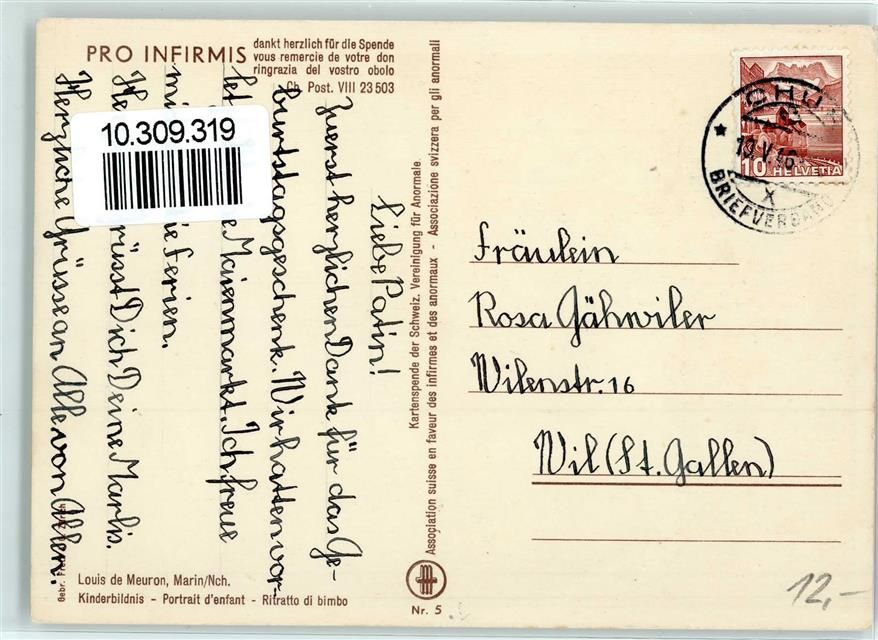 PRO INFIRMIS
dankt herzlich für die Spende
vous remercie de votre don
ringrazia del vostro obolo
Ch. Post. VIII 23 503
10.309.319
Liebe Patin!
Zuerst herzlichen Dank für das Ge-
burtstagsgeschenk. Wir hatten vor-
let Maienmarkt. Ich freue
mi ie Ferien.
He rüsst Dich Deine Marlis.
Herzliche Grüsse an Alle von Allen.
Kartenspende der Schweiz. Vereinigung für Anormale.
Association suisse en faveur des infirmes et des anormaux - Associazione svizzera per gli anormali
CHUR
BRIEFVERSAND
X
10 HELVETIA
Fräulein
Rosa Gähwiler
Wilenstr. 16
Wil (St. Gallen)
Louis de Meuron, Marin/Nch.
Kinderbildnis - Portrait d'enfant - Ritratto di bimbo
Nr. 5
12,-